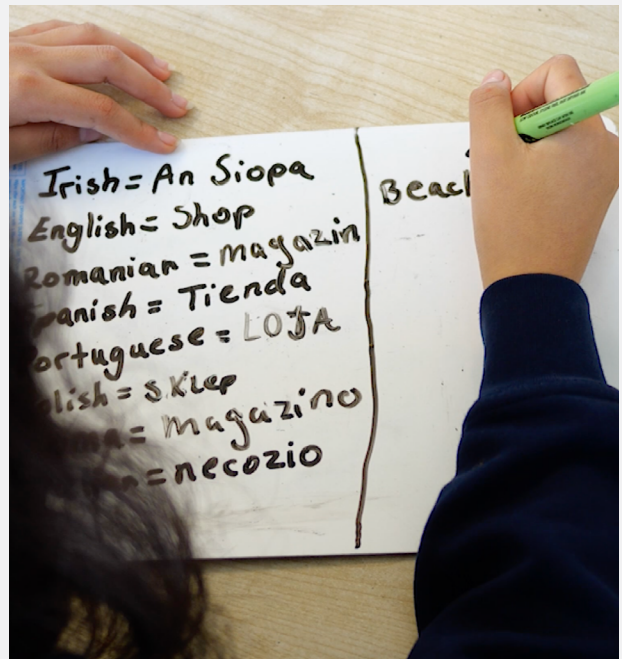 Irish = An Siopa
English = Shop
Romanian = magazin
panish = Tienda
ortuguese = LOJA
olish = SKlep
= magazino
= necozio
Beach